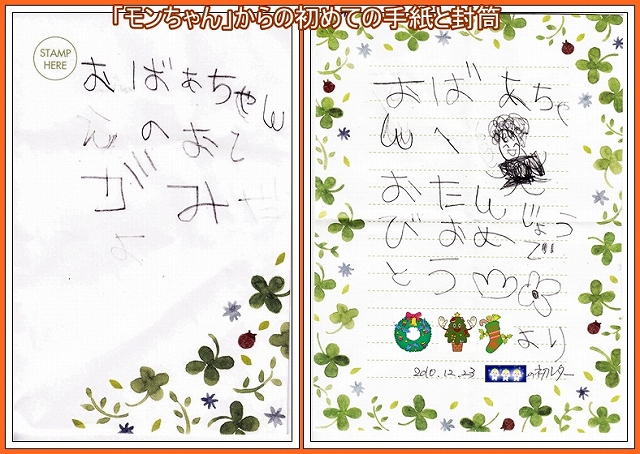 「モンちゃん」からの初めての手紙と封筒
STAMP
HERE
おばぁちゃん
のおて
がみ
おばあちゃ
んへ
おたんじょう
びおめで
とう
より
2010.12.23 の初レター